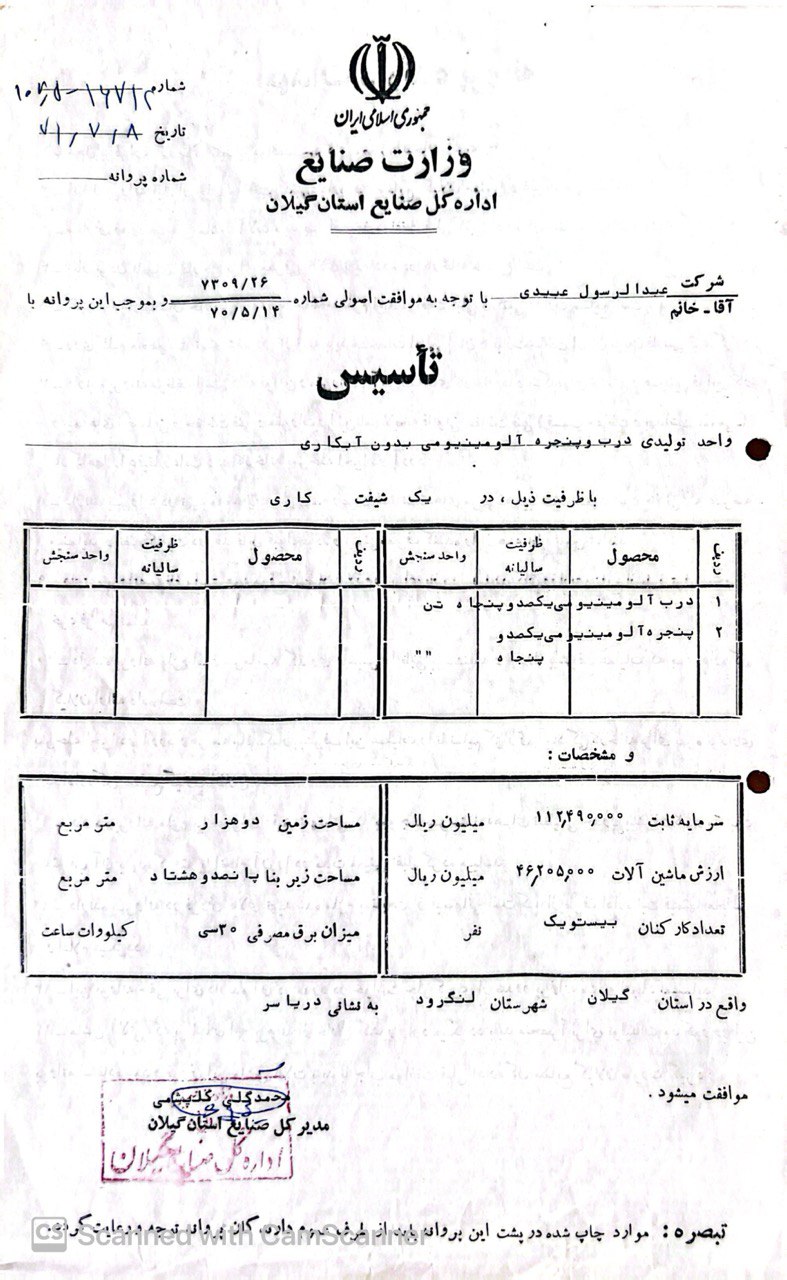 جمهوری اسلامی ایران
وزارت صنایع
اداره کل صنایع استان گیلان
شماره
تاریخ ۷۱/۷/۸
شماره پروانه
شرکت
آقا - خانم
عبدالرسول عبیدی با توجه به موافقت اصولی شماره ۷۳۰۹/۲۶
۷۰/۵/۱۴
و بموجب این پروانه با
تأسیس
واحد تولیدی درب و پنجره آلومینیومی بدون آبکاری
با ظرفیت ذیل ، در یک شیفت کاری
ردیف محصول ظرفیت سالیانه واحد سنجش ردیف محصول ظرفیت سالیانه واحد سنجش
۱ درب آلومینیومی یکصد و پنجاه تن
۲ پنجره آلومینیومی یکصد و
پنجاه " "
و مشخصات :
سرمایه ثابت ۱۱۲,۴۹۰,۰۰۰ میلیون ریال مساحت زمین دوهزار متر مربع
ارزش ماشین آلات ۴۶,۲۰۵,۰۰۰ میلیون ریال مساحت زیر بنا پانصدوهشتاد متر مربع
تعداد کارکنان بیست و یک نفر میزان برق مصرفی ۳۰سی کیلووات ساعت
واقع در استان گیلان شهرستان لنگرود به نشانی دریاسر
موافقت میشود .
محمدگلی گلپشمی
مدیر کل صنایع استان گیلان
اداره کل صنایع گیلان
تبصره : موارد چاپ شده در پشت این پروانه باید از طرف دارندگان پروانه توجه و رعایت گردد.
CS Scanned with CamScanner